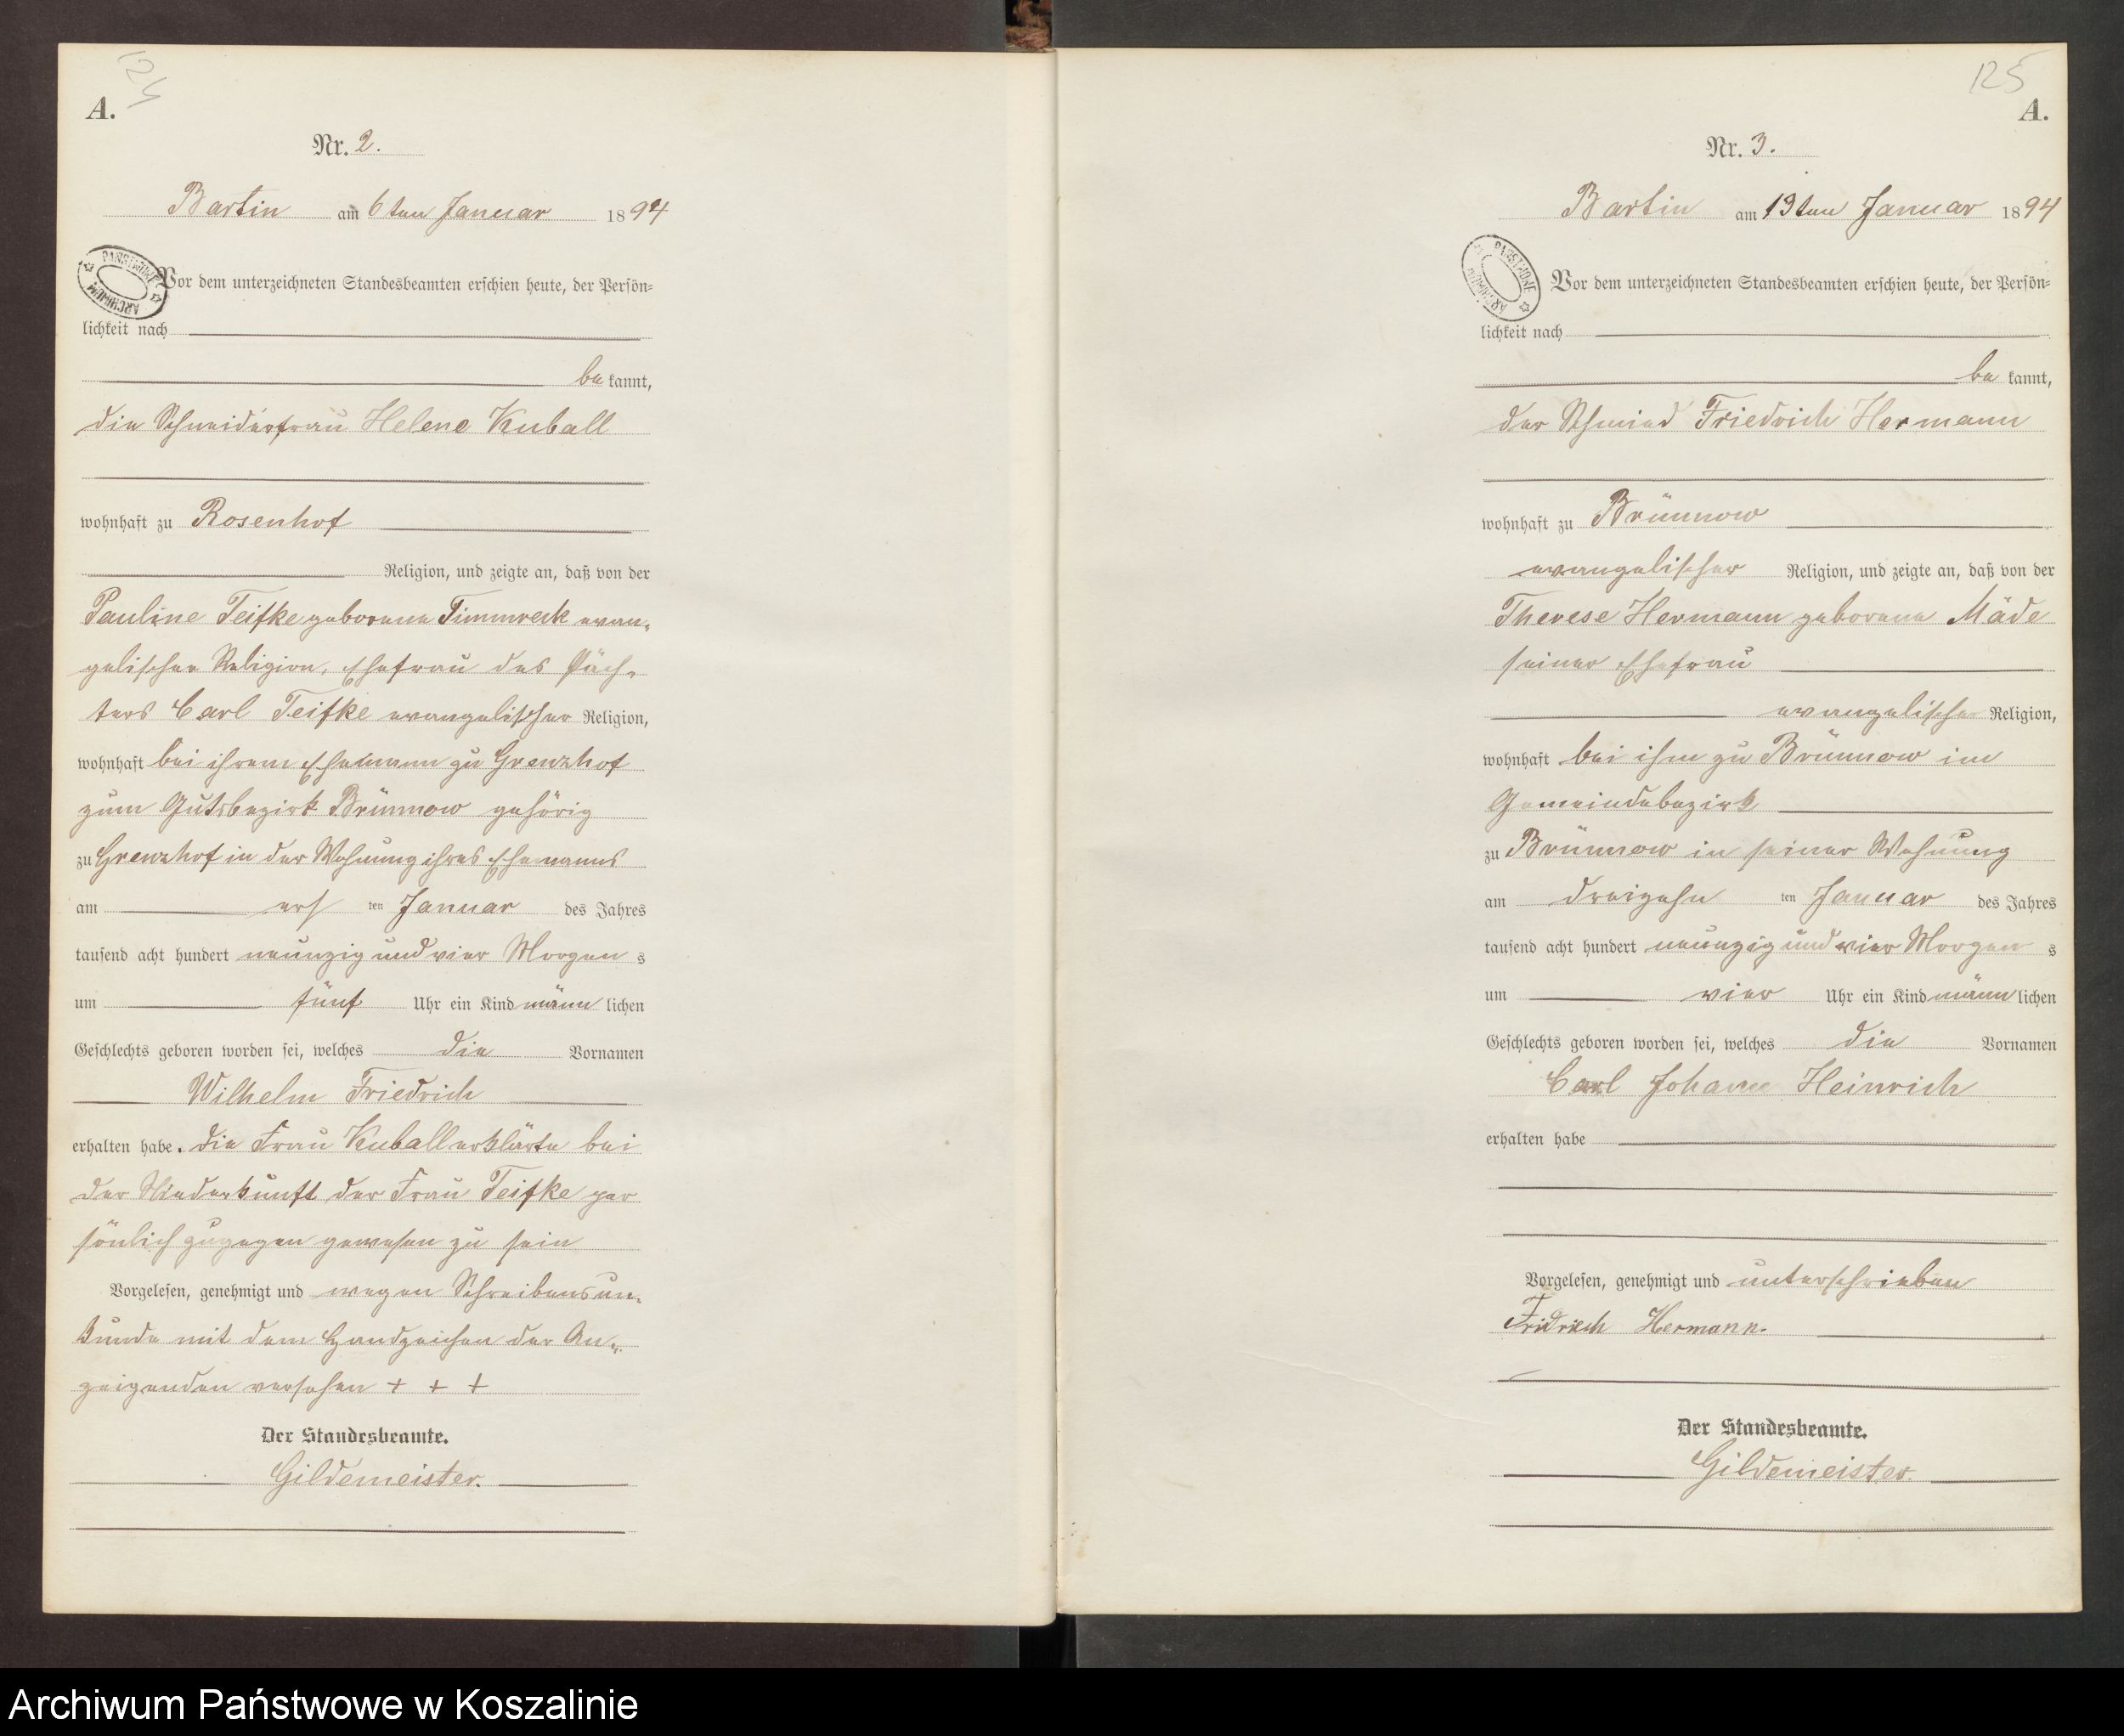 124
A.
Nr. 2.
Bartin am 6ten Januar 1894
PAŃSTWOWE ARCHIWUM
Vor dem unterzeichneten Standesbeamten erschien heute, der Persön=
lichkeit nach
be kannt,
die Schneiderfrau Helene Kuball
wohnhaft zu Rosenhof
Religion, und zeigte an, daß von der
Pauline Teifke geborene Timmreck evan-
gelischer Religion, Ehefrau des Päch-
ters Carl Teifke evangelischer Religion,
wohnhaft bei ihrem Ehemann zu Grenzhof
zum Gutsbezirk Brünnow gehörig
zu Grenzhof in der Wohnung ihres Ehemanns
am erst ten Januar des Jahres
tausend acht hundert neunzig und vier Morgen s
um fünf Uhr ein Kind männ lichen
Geschlechts geboren worden sei, welches die Vornamen
Wilhelm Friedrich
erhalten habe. die Frau Kuball erklärte bei
der Niederkunft der Frau Teifke per
sönlich zugegen gewesen zu sein
Vorgelesen, genehmigt und wegen Schreibensun-
kunde mit dem Handzeichen der An-
zeigenden versehen + + +
Der Standesbeamte.
Gildemeister.
125
A.
Nr. 3.
Bartin am 13ten Januar 1894
PAŃSTWOWE ARCHIWUM
Vor dem unterzeichneten Standesbeamten erschien heute, der Persön=
lichkeit nach
be kannt,
der Schmied Friedrich Hermann
wohnhaft zu Brünnow
evangelischer Religion, und zeigte an, daß von der
Therese Hermann geborene Mäde
seiner Ehefrau
evangelischer Religion,
wohnhaft bei ihm zu Brünnow im
Gemeindebezirk
zu Brünnow in seiner Wohnung
am dreizehn ten Januar des Jahres
tausend acht hundert neunzig und vier Morgen s
um vier Uhr ein Kind männ lichen
Geschlechts geboren worden sei, welches die Vornamen
Carl Johann Heinrich
erhalten habe
Vorgelesen, genehmigt und unterschrieben
Fridrich Hermann.
Der Standesbeamte.
Gildemeister.
Archiwum Państwowe w Koszalinie